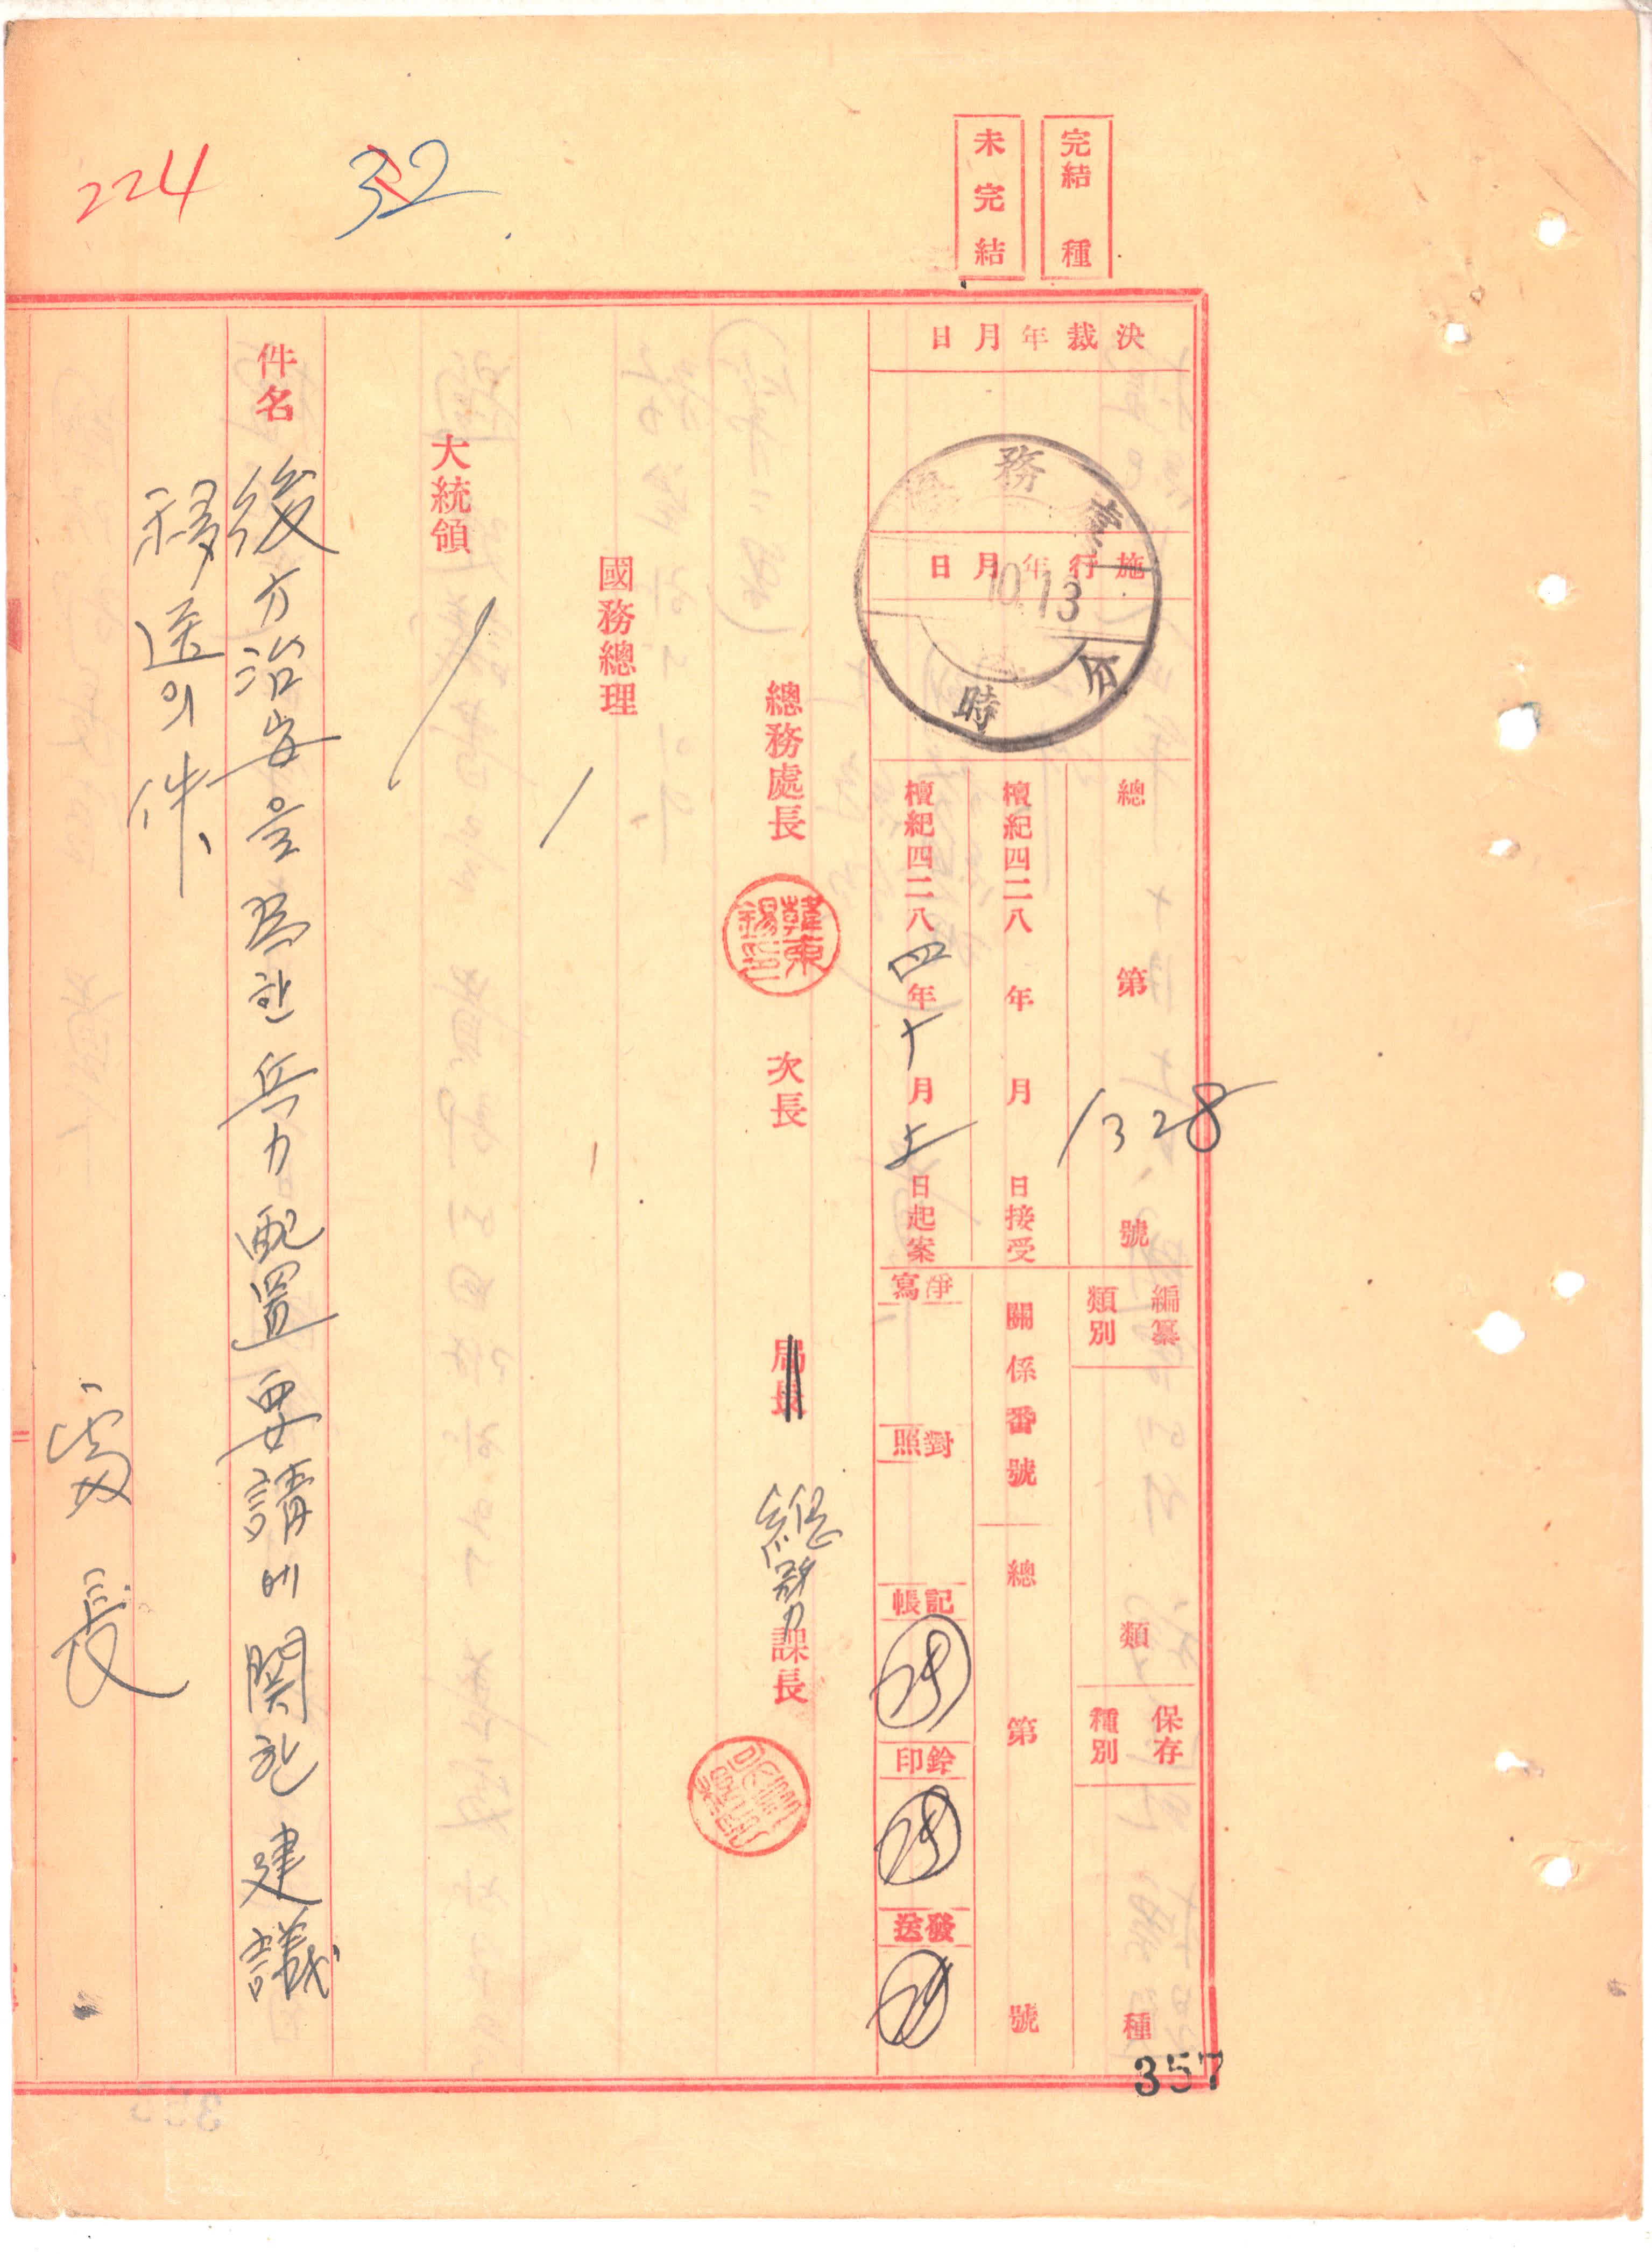 224
32
完結 種
未完結
決裁年月日
務
施行年月日
10.13
時
總 第 1328 號
檀紀四二八 年 月 日接受
檀紀四二八四年十月十二日起案
編纂類別
類
保存種別
種
關係番號
總 第 號
淨寫
對照
記帳
鈐印
發送
總務處長
韓東錫印
次長
局長
總務課長
國務總理
大統領
件名
後方治安을 爲한 兵力配置要請에 関한 建議
移送의 件
處長
357